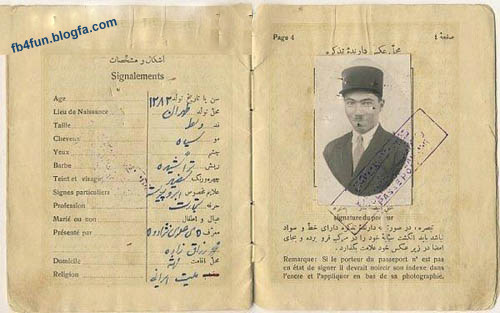 fb4fun.blogfa.com
اشکال و مشخصات
Signalements
Age سن یا تاریخ تولد ۱۲۸۲
Lieu de Naissance محل تولد طهران
Taille قد وسط
Cheveux مو سیاه
Yeux چشم
Barbe ریش تراشیده
Teint et visage
Signes particuliers علایم مخصوص
Profession تجارت
Marié ou non عیال و اطفال
Présenté par معرف
Domicile محل اقامت
Religion ملیت ایرانی
Page 4 صفحهٔ ٤
محل عکس دارندهٔ تذکره
PASSEPORT
signature du porteur
تبصره، در صورتیکه دارندهٔ تذکره دارای خط و سواد
نباشد باید انگشت سبابهٔ خود را در مرکب فرو برده و بجای
امضا در زیر عکس خود علامت بگذارد.
Remarque: Si le porteur du passeport n' est pas
en état de signer il devrait noircir son indexe dans
l'encre et l'appliquer en bas de sa photographie.